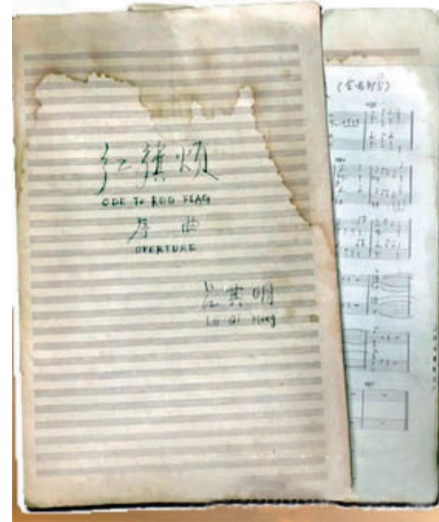 红旗颂
ODE TO RED FLAG
序曲
OVERTURE
吕其明
Lü Qi Ming